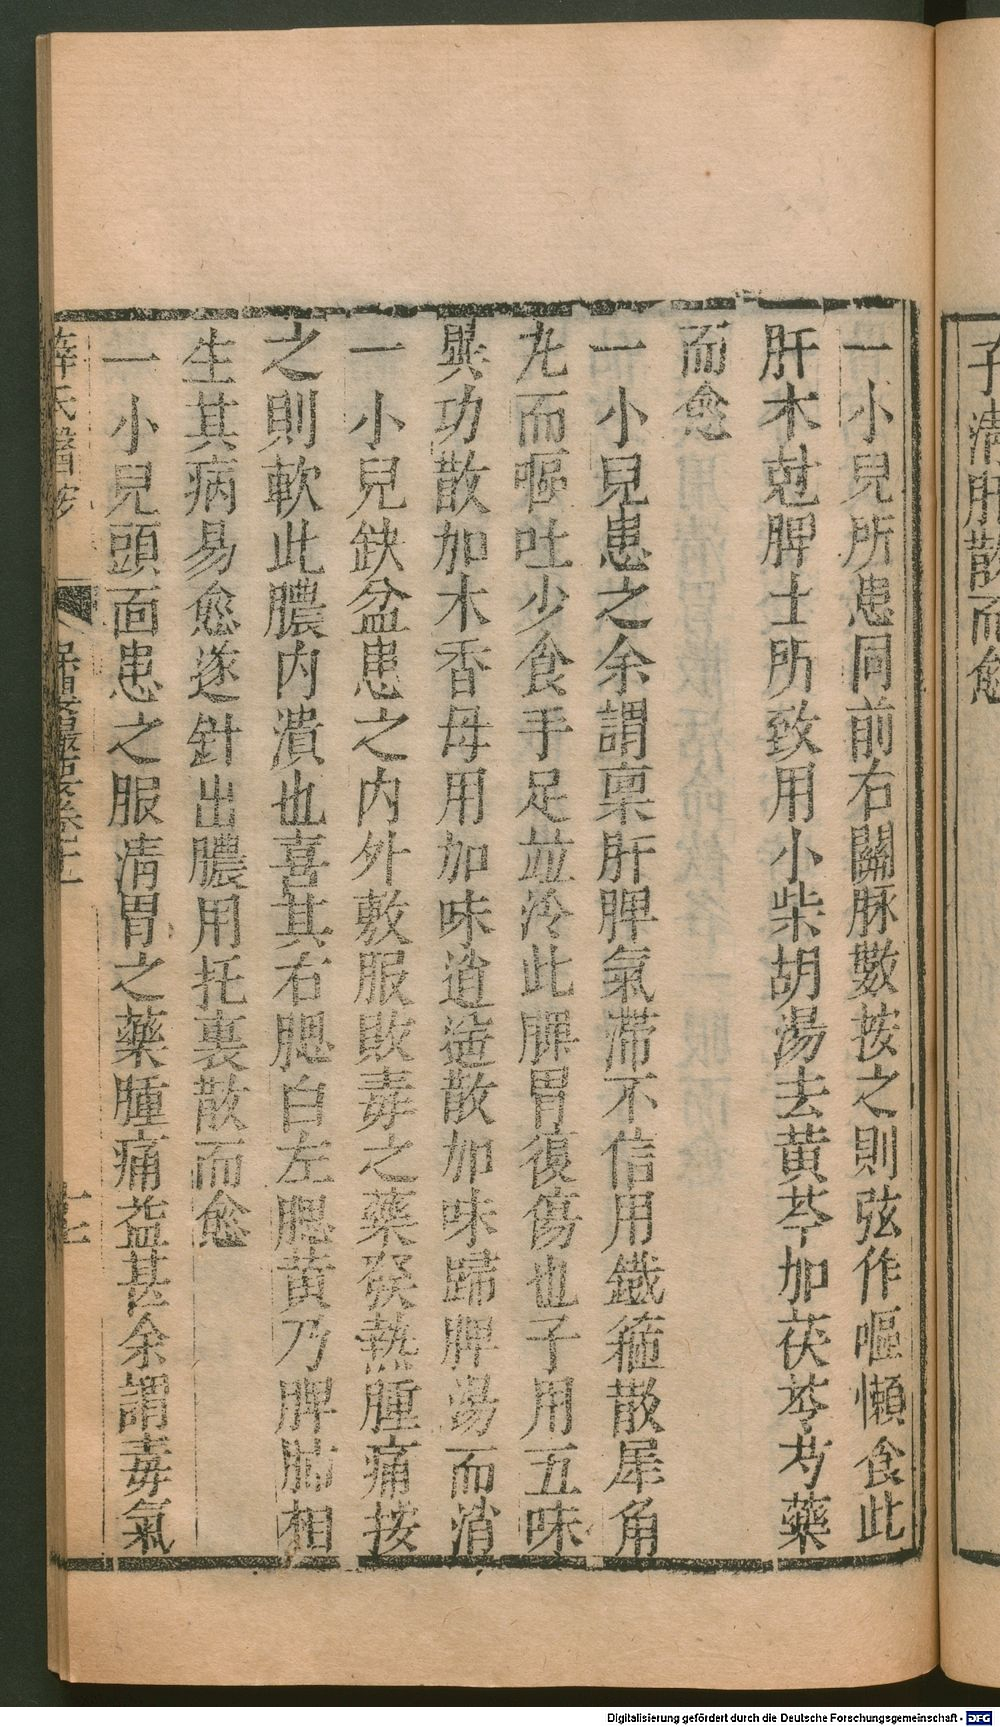 子清肝散而愈
一小兒所患同前右關脉數按之則弦作嘔懶食此
肝木尅脾土所致用小柴胡湯去黃芩加茯苓芍藥
而愈
一小兒患之余謂稟肝脾氣滯不信用鐵箍散犀角
丸而嘔吐少食手足並冷此脾胃復傷也子用五味
異功散加木香母用加味逍遙散加味歸脾湯而消
一小兒缺盆患之内外敷服敗毒之藥發熱腫痛按
之則軟此膿内潰也喜其右腮白左腮黃乃脾肺相
生其病易愈遂針出膿用托裏散而愈
一小兒頭面患之服清胃之藥腫痛益甚余謂毒氣
薛氏醫按 保嬰撮要卷十二 十七
Digitalisierung gefördert durch die Deutsche Forschungsgemeinschaft - DFG